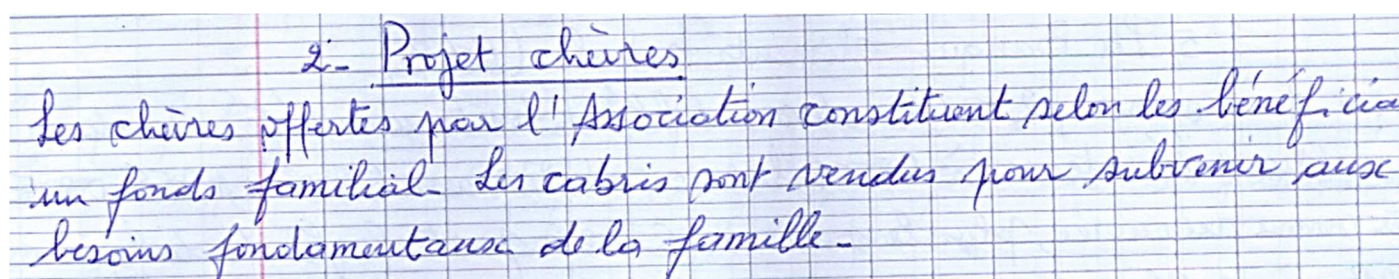 2- Projet chèvres
Les chèvres offertes par l'Association constituent selon les bénéficia
un fonds familial. Les cabris sont vendus pour subvenir aux
besoins fondamentaux de la famille.